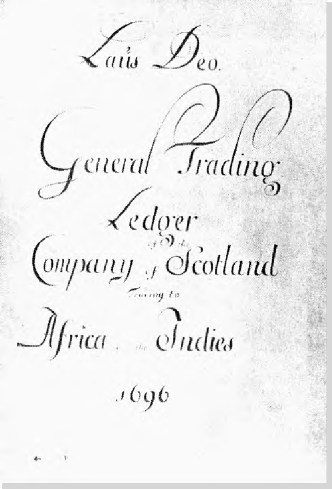 Laus Deo.
General Trading
Ledger
of the
Company of Scotland
Trading to
Africa and the Indies
1696